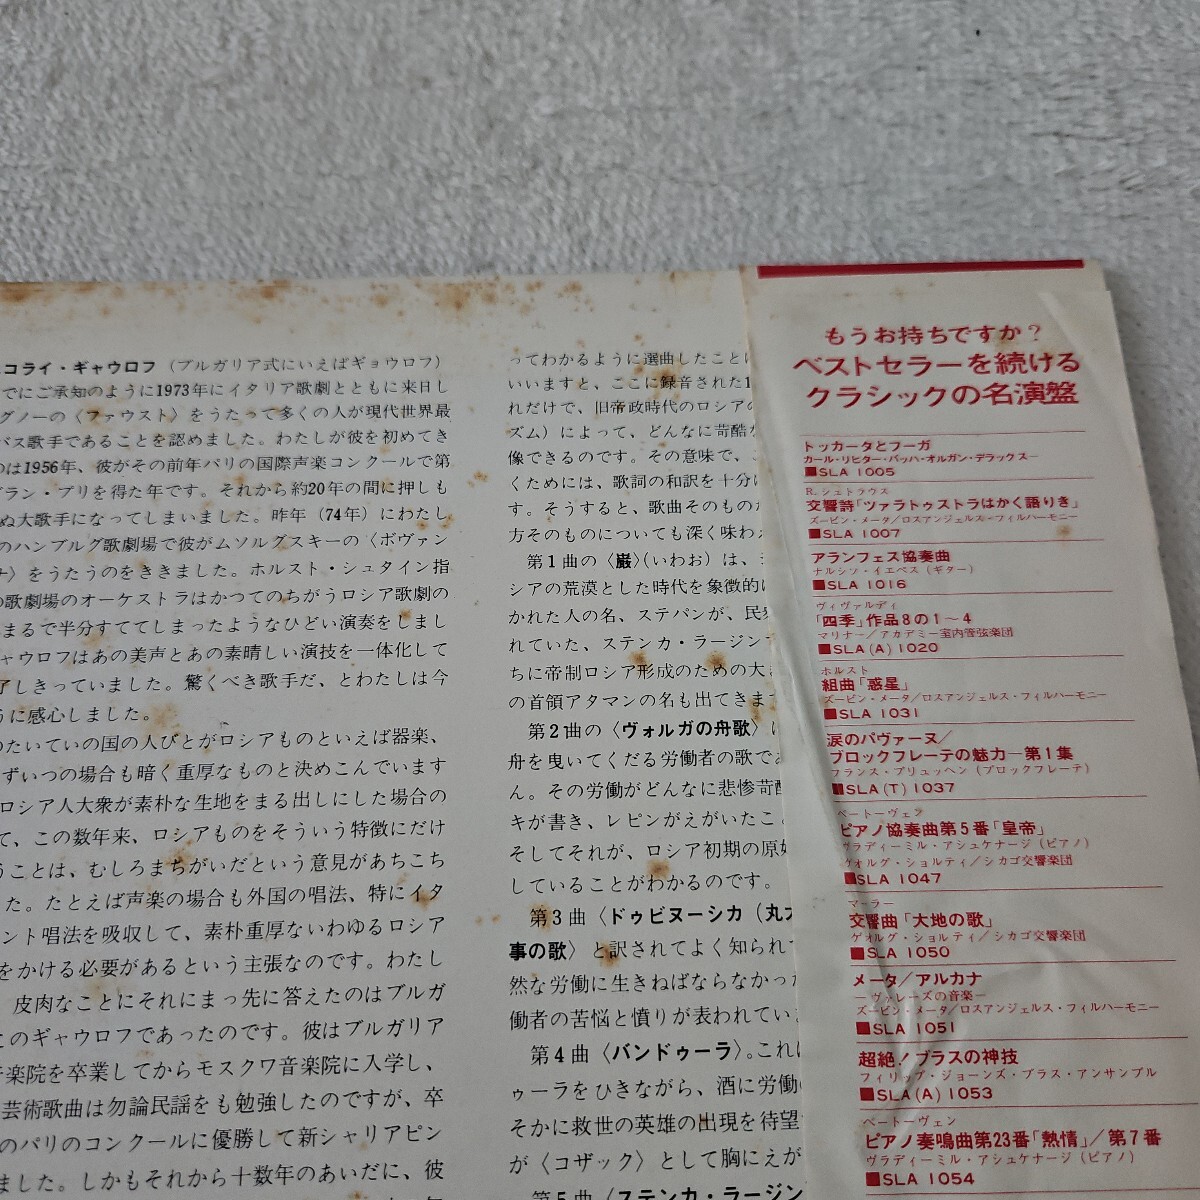 コライ・ギャウロフ（ブルガリア式にいえばギョウロフ）
でにご承知のように1973年にイタリア歌劇とともに来日し
グノーの〈ファウスト〉をうたって多くの人が現代世界最
バス歌手であることを認めました。わたしが彼を初めてき
のは1956年、彼がその前年パリの国際声楽コンクールで第
グラン・プリを得た年です。それから約20年の間に押しも
ぬ大歌手になってしまいました。昨年（74年）にわたし
のハンブルグ歌劇場で彼がムソルグスキーの〈ボヴァン
ナ〉をうたうのをききました。ホルスト・シュタイン指
の歌劇場のオーケストラはかつてのちがうロシア歌劇の
まるで半分すててしまったようなひどい演奏をしまし
ャウロフはあの美声とあの素晴しい演技を一体化して
了しきっていました。驚くべき歌手だ、とわたしは今
うに感心しました。
のたいていの国の人びとがロシアものといえば器楽、
ずいつの場合も暗く重厚なものと決めこんでいます
ロシア人大衆が素朴な生地をまる出しにした場合の
て、この数年来、ロシアものをそういう特徴にだけ
うことは、むしろまちがいだという意見があちこち
た。たとえば声楽の場合も外国の唱法、特にイタ
ント唱法を吸収して、素朴重厚ないわゆるロシア
をかける必要があるという主張なのです。わたし
、皮肉なことにそれにまっ先に答えたのはブルガ
このギャウロフであったのです。彼はブルガリア
音楽院を卒業してからモスクワ音楽院に入学し、
芸術歌曲は勿論民謡をも勉強したのですが、卒
のパリのコンクールに優勝して新シャリアピン
ました。しかもそれから十数年のあいだに、彼
ってわかるように選曲したことに
いいますと、ここに録音された1
れだけで、旧帝政時代のロシアの
ズム）によって、どんなに苛酷な
像できるのです。その意味で、こ
くためには、歌詞の和訳を十分に
す。そうすると、歌曲そのものが
方そのものについても深く味わえ
第1曲の〈巌〉（いわお）は、
シアの荒漠とした時代を象徴的に
かれた人の名、ステパンが、民衆
れていた、ステンカ・ラージンで
ちに帝制ロシア形成のための大き
の首領アタマンの名も出てきます
第2曲の〈ヴォルガの舟歌〉は
舟を曳いてくだる労働者の歌であ
ん。その労働がどんなに悲惨苛酷
キが書き、レピンがえがいたこ
そしてそれが、ロシア初期の原始
していることがわかるのです。
第3曲〈ドゥビヌーシカ（丸太
事の歌〉と訳されてよく知られて
然な労働に生きねばならなかった
働者の苦悩と憤りが表われていま
第4曲〈バンドゥーラ〉。これは
ゥーラをひきながら、酒に労働の
そかに救世の英雄の出現を待望
が〈コザック〉として胸にえが
第5曲〈ステンカ・ラージン
もうお持ちですか？
ベストセラーを続ける
クラシックの名演盤
トッカータとフーガ
カール・リヒター・バッハ・オルガン・デラックスー
■SLA 1005
R.シュトラウス
交響詩「ツァラトゥストラはかく語りき」
ズービン・メータ/ロスアンジェルス・フィルハーモニー
■SLA 1007
アランフェス協奏曲
ナルシソ・イエペス（ギター）
■SLA 1016
ヴィヴァルディ
「四季」作品8の1～4
マリナー／アカデミー室内管弦楽団
■SLA(A) 1020
ホルスト
組曲「惑星」
ズービン・メータ/ロスアンジェルス・フィルハーモニー
■SLA 1031
涙のパヴァーヌ/
ブロックフレーテの魅力—第1集
フランス・ブリュッヘン（ブロックフレーテ）
■SLA(T) 1037
ベートーヴェン
ピアノ協奏曲第5番「皇帝」
ヴラディーミル・アシュケナージ（ピアノ）
ゲオルグ・ショルティ/シカゴ交響楽団
■SLA 1047
マーラー
交響曲「大地の歌」
ゲオルグ・ショルティ/シカゴ交響楽団
■SLA 1050
メータ/アルカナ
—ヴァレーズの音楽—
ズービン・メータ/ロスアンジェルス・フィルハーモニー
■SLA 1051
超絶！ブラスの神技
フィリップ・ジョーンズ・ブラス・アンサンブル
■SLA(A) 1053
ベートーヴェン
ピアノ奏鳴曲第23番「熱情」/第7番
ヴラディーミル・アシュケナージ（ピアノ）
■SLA 1054